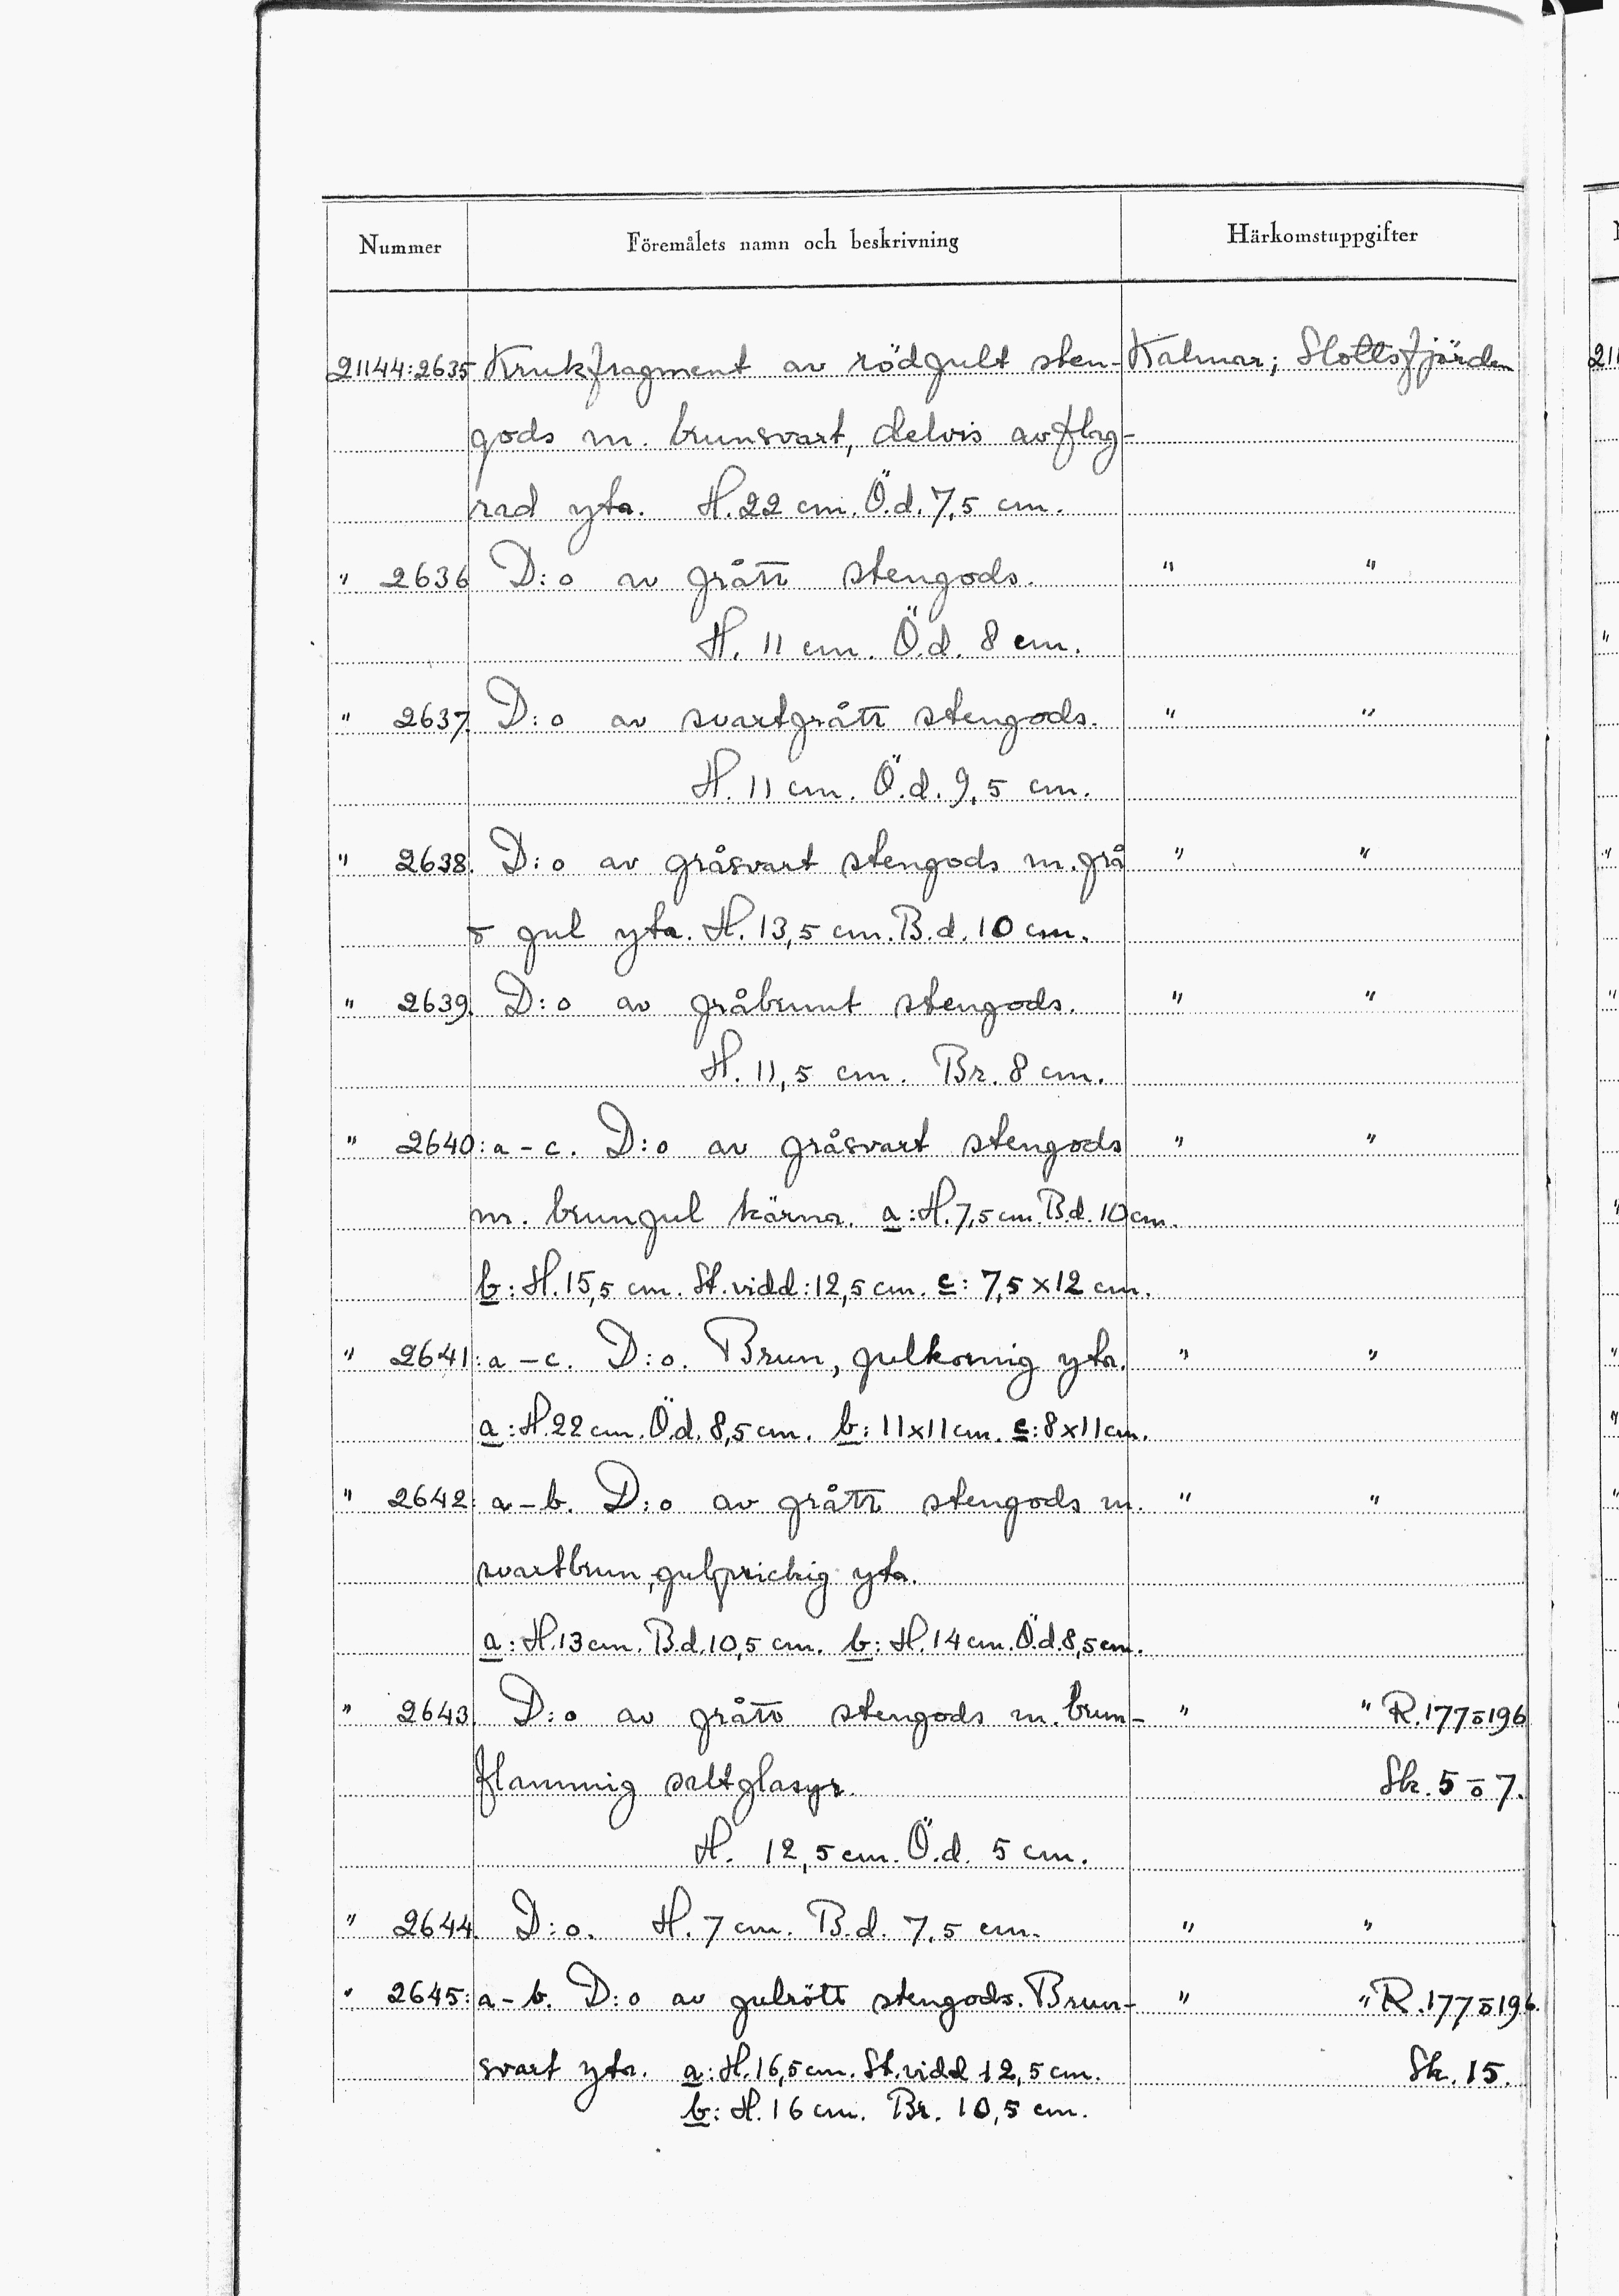 Nummer Föremålets namn och beskrivning Härkomstuppgifter
21144:2635 Krukfragment av rödgult sten- Kalmar; Slottsfjärden
gods m. brunsvart, delvis avflag-
rad yta. H. 22 cm. Ö.d. 7,5 cm.
" 2636 D:o av grått stengods. " "
H. 11 cm. Ö.d. 8 cm.
" 2637. D:o av svartgrått stengods. " "
H. 11 cm. Ö.d. 9,5 cm.
" 2638. D:o av gråsvart stengods m. grå " "
o gul yta. H. 13,5 cm. B.d. 10 cm.
" 2639. D:o av gråbrunt stengods. " "
H. 11,5 cm. Br. 8 cm.
" 2640:a-c. D:o av gråsvart stengods " "
m. brungul kärna. a: H. 7,5 cm. B.d. 10 cm.
b: H. 15,5 cm. St. vidd: 12,5 cm. c: 7,5 x 12 cm.
" 2641:a-c. D:o. Brun, gulkornig yta. " "
a: H. 22 cm. Ö.d. 8,5 cm. b: 11x11 cm. c: 8x11 cm.
" 2642: a-b. D:o av grått stengods m. " "
svartbrun, gulprickig yta.
a: H. 13 cm. B.d. 10,5 cm. b: H. 14 cm. Ö.d. 8,5 cm.
" 2643. D:o av grått stengods m. brun- " " R. 177 o 196
flammig saltglasyr. Sk. 5 o 7.
H. 12,5 cm. Ö.d. 5 cm.
" 2644. D:o. H. 7 cm. B.d. 7,5 cm. " "
" 2645: a-b. D:o av gulrött stengods. Brun- " " R. 177 o 196.
svart yta. a: H. 16,5 cm. St. vidd 12,5 cm. Sk. 15.
b: H. 16 cm. Br. 10,5 cm.